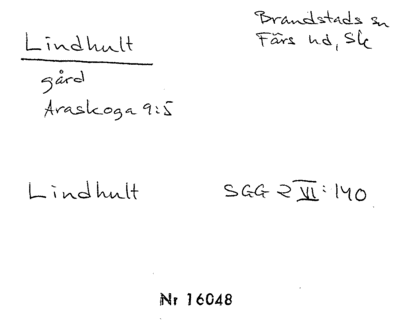 Lindhult
Brandstads sn
Färs hd, Sk
gård
Araskoga 9:5
Lindhult
SGG 2 VI: 140
Nr 16048